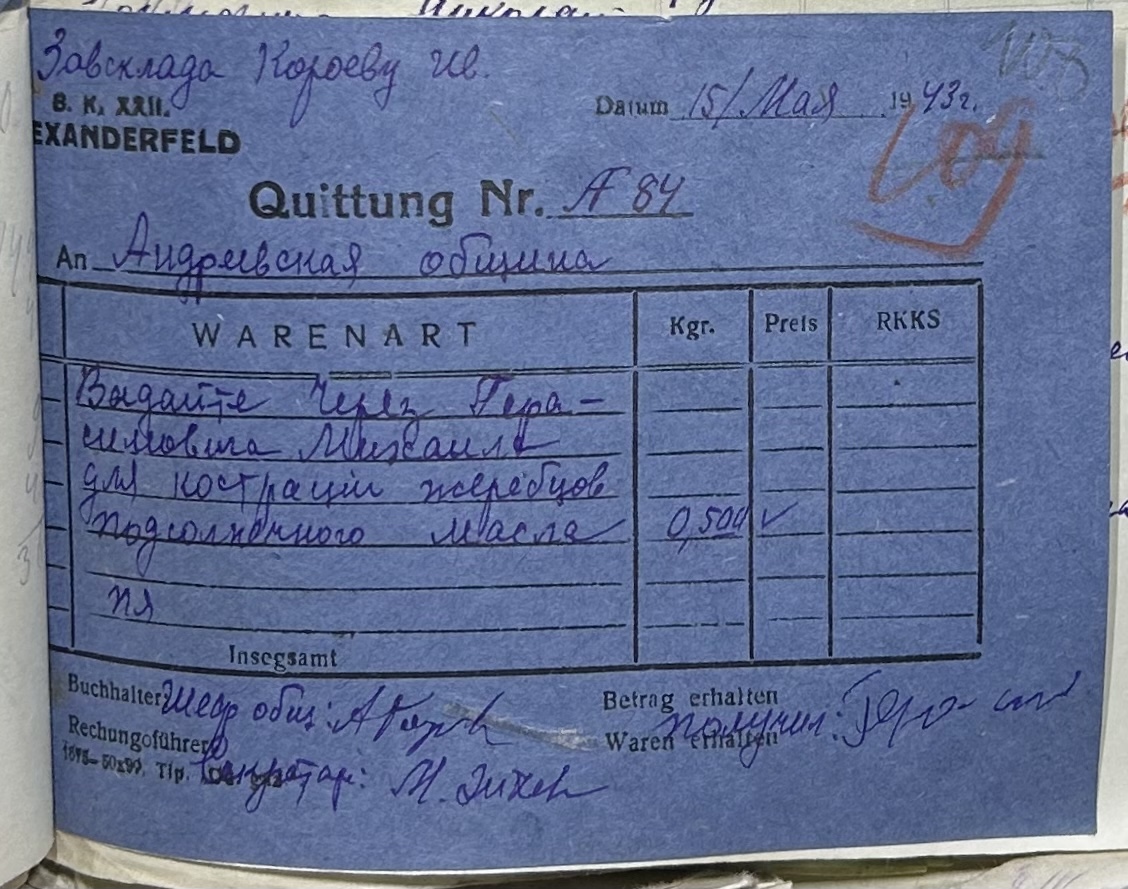 Завсклада Короеву Ив.
B. K. XXII.
EXANDERFELD
Datum 15/Мая 1943г.
103
109
Quittung Nr. А 84
An Андреевская община
WARENART Kgr. Preis RKKS
Выдайте через Гера-
симовича Михаила
для кострации жеребцов
подсолнечного масла 0,500 ✓
Insegsamt
Buchhalter Шеф общ:
Betrag erhalten
Rechungsführer
Waren erhalten получил:
Tip. Секретарь: М.